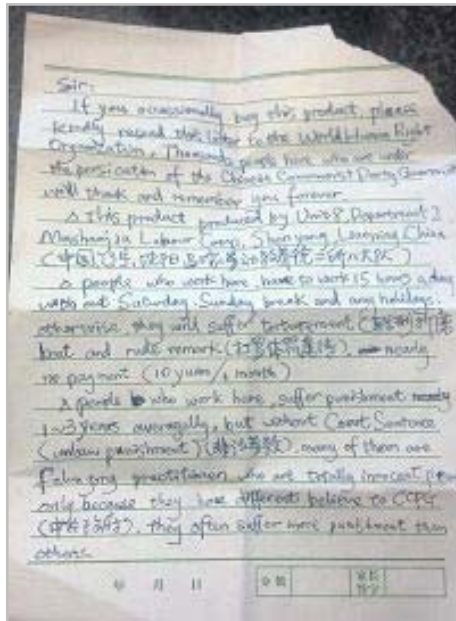 Sir:
If you occassionally buy this product, please
kindly resend this letter to the World Human Right
Organization. Thousands people here who are under
the persicution of the Chinese Communist Party Government
will thank and remember you forever.
This product produced by Unit 8, Department 2,
Masanjia Labour Camp, Shenyang, Liaoning, China
(中国, 辽宁, 沈阳 马三家劳动教养院二所八大队)
people who work here, have to work 15 hours a day
with out Saturday, Sunday break and any holidays,
otherwise, they will suffer torturement
beat and rude remark (打骂体罚虐待), nearly
no payment (10 yuan/1 month)
people who work here, suffer punishment
1~3 years averagely, but without Court Sentence
(unlaw punishment) (非法劳教), many of them are
Falun gong practitioner, who are totally innocent
only because they have different believe to CCPG
they often suffer more punishment than
others.
年 月 日